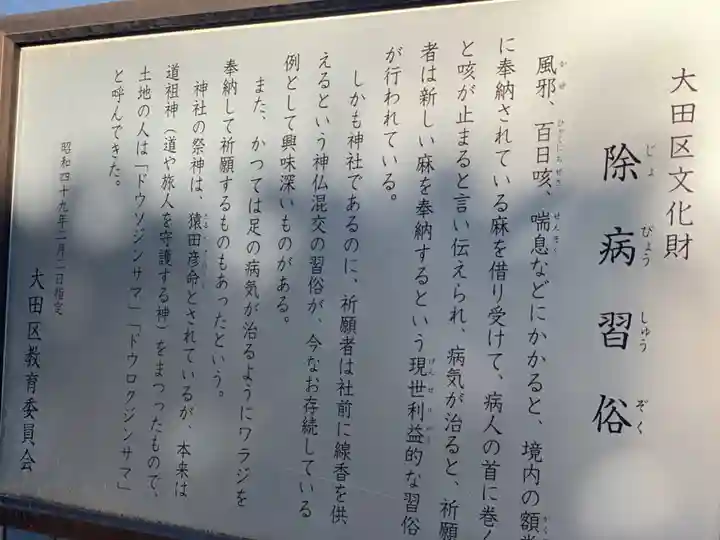 大田区文化財
除病習俗
じょびょうしゅうぞく
風邪、百日咳、喘息などにかかると、境内の額
に奉納されている麻を借り受けて、病人の首に巻く
と咳が止まると言い伝えられ、病気が治ると、祈願
者は新しい麻を奉納するという現世利益的な習俗
が行われている。
しかも神社であるのに、祈願者は社前に線香を供
えるという神仏混交の習俗が、今なお存続している
例として興味深いものがある。
また、かつては足の病気が治るようにワラジを
奉納して祈願するものもあったという。
神社の祭神は、猿田彦命とされているが、本来は
道祖神（道や旅人を守護する神）をまつったもので、
土地の人は「ドウソジンサマ」「ドウロクジンサマ」
と呼んできた。
昭和四十九年二月二日指定
大田区教育委員会